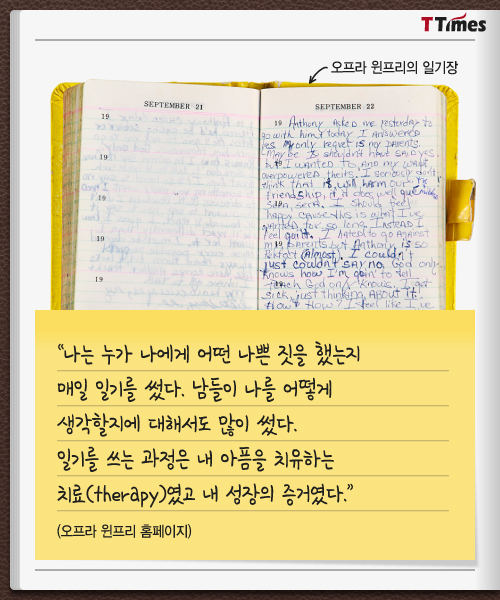 TTimes
오프라 윈프리의 일기장
SEPTEMBER 21
SEPTEMBER 22
19
19
19
19
19
19 Anthony asked me yesterday to
go with him & today I answered
yes. My only regret is my parents.
Maybe I shouldn't have said yes.
but I wanted to, and my want
overpowered theirs. I seriously don't
think that it will harm our
friendship, if it does well
I should feel
happy cause this is what I've
wanted for so long. Instead I
feel guilt. I hated to go against
parents but Anthony is so
Perfect (Almost). I couldn't
just couldn't say no. God only
knows how I'm goin' to tell
God only knows. I get
sick, just thinking about it.
How? How? I feel like I've
“나는 누가 나에게 어떤 나쁜 짓을 했는지
매일 일기를 썼다. 남들이 나를 어떻게
생각할지에 대해서도 많이 썼다.
일기를 쓰는 과정은 내 아픔을 치유하는
치료(therapy)였고 내 성장의 증거였다.”
(오프라 윈프리 홈페이지)